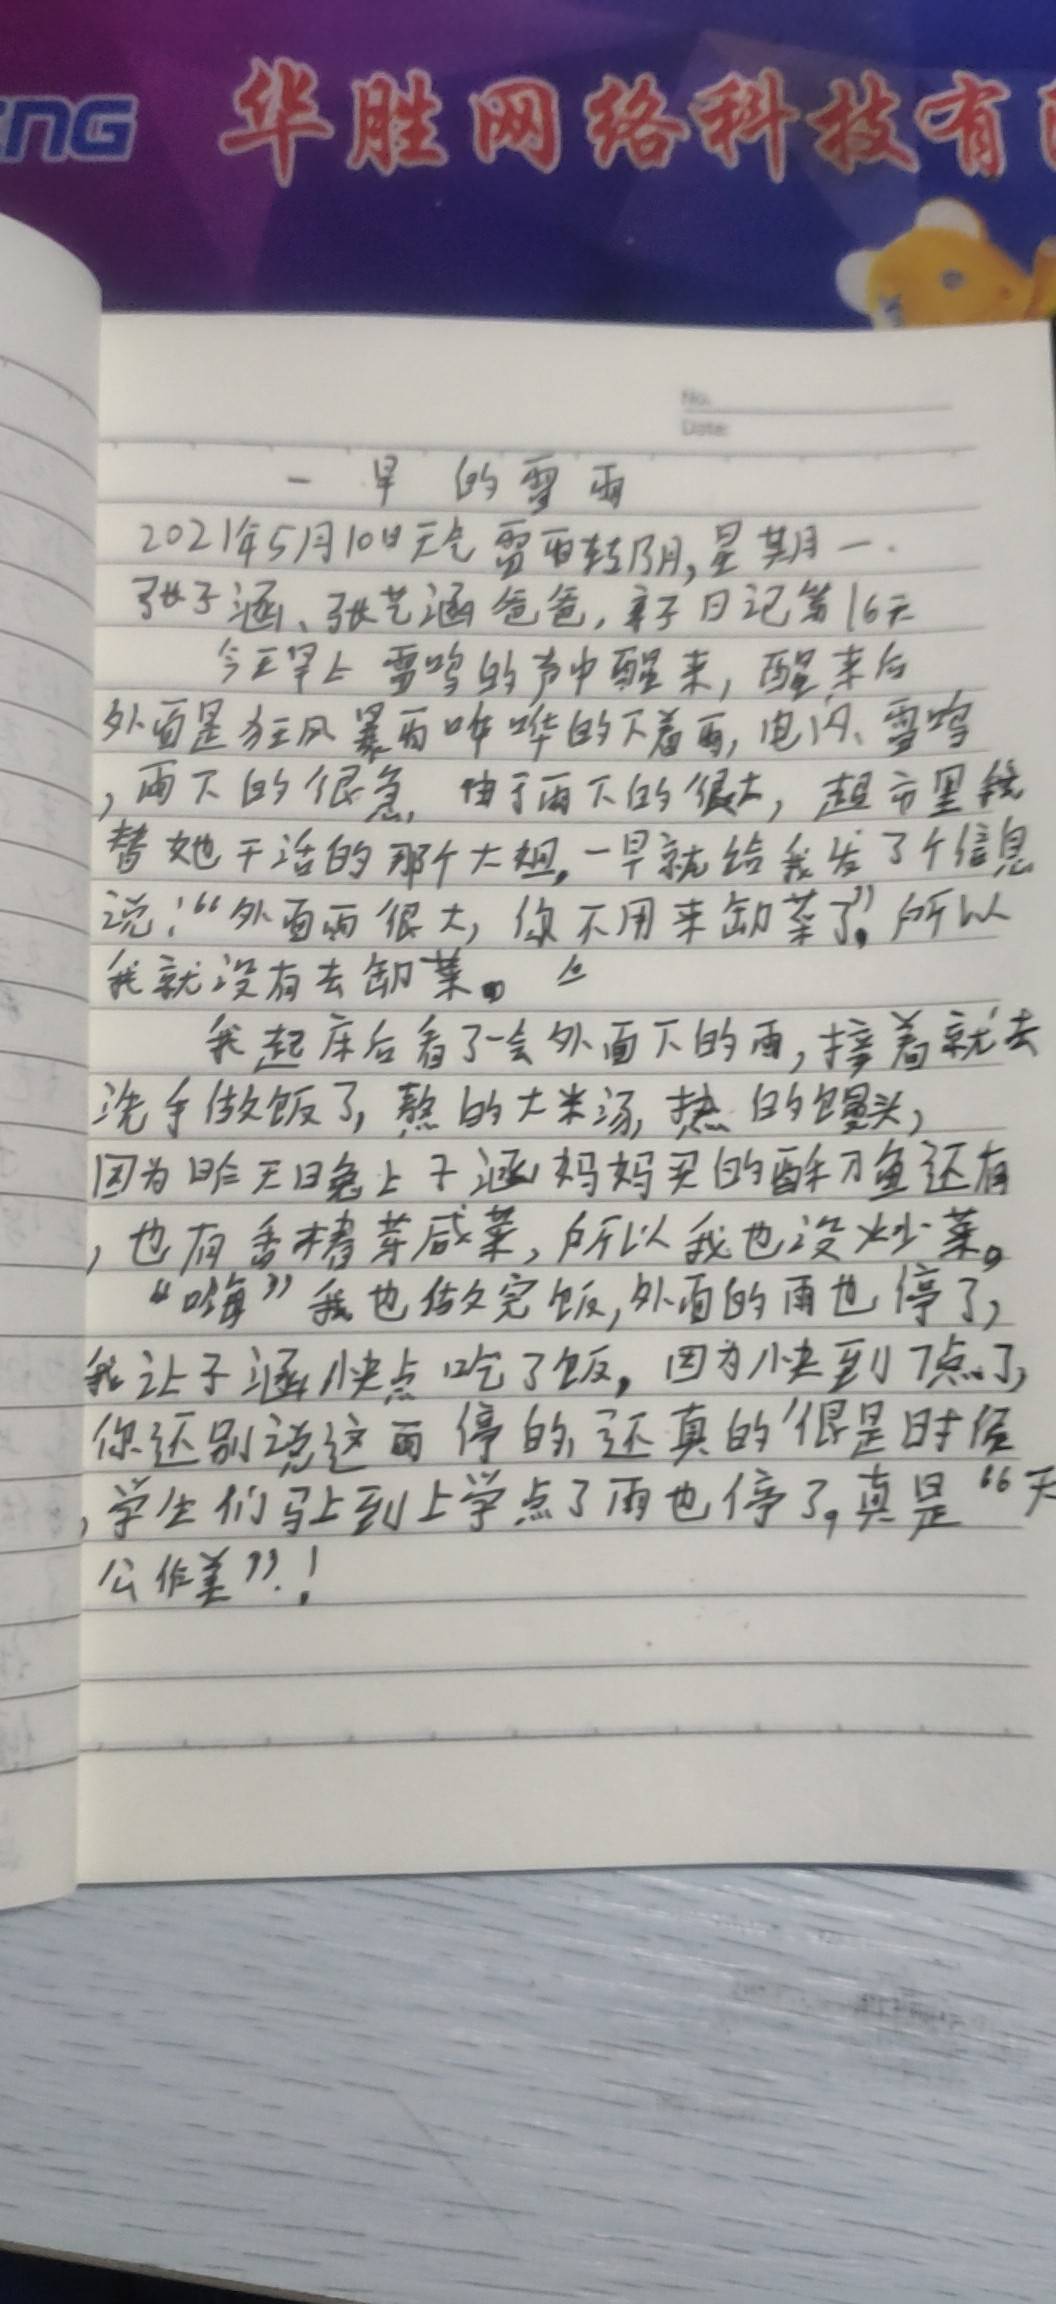 NG 华胜网络科技有
No.
Date:
一早的雷雨
2021年5月10日天气雷雨转阴,星期一.
张子涵、张艺涵爸爸,亲子日记第16天
今天早上雷鸣的声中醒来,醒来后
外面是狂风暴雨哗哗的下着雨,电闪、雷鸣
,雨下的很急,由于雨下的很大,超市里我
替她干活的那个大姐,一早就给我发了个信息
说:“外面雨很大,你不用来卸菜了”。所以
我就没有去卸菜。
我起床后看了一会外面下的雨,接着就去
洗手做饭了,熬的大米汤,热的馒头,
因为昨天晚上子涵妈妈买的酥刀鱼还有
,也有香椿芽咸菜,所以我也没炒菜。
“嗨”我也做完饭,外面的雨也停了,
我让子涵快点吃了饭,因为快到7点了,
你还别说这雨停的,还真的很是时候
,学生们马上到上学点了雨也停了,真是“天
公作美”!